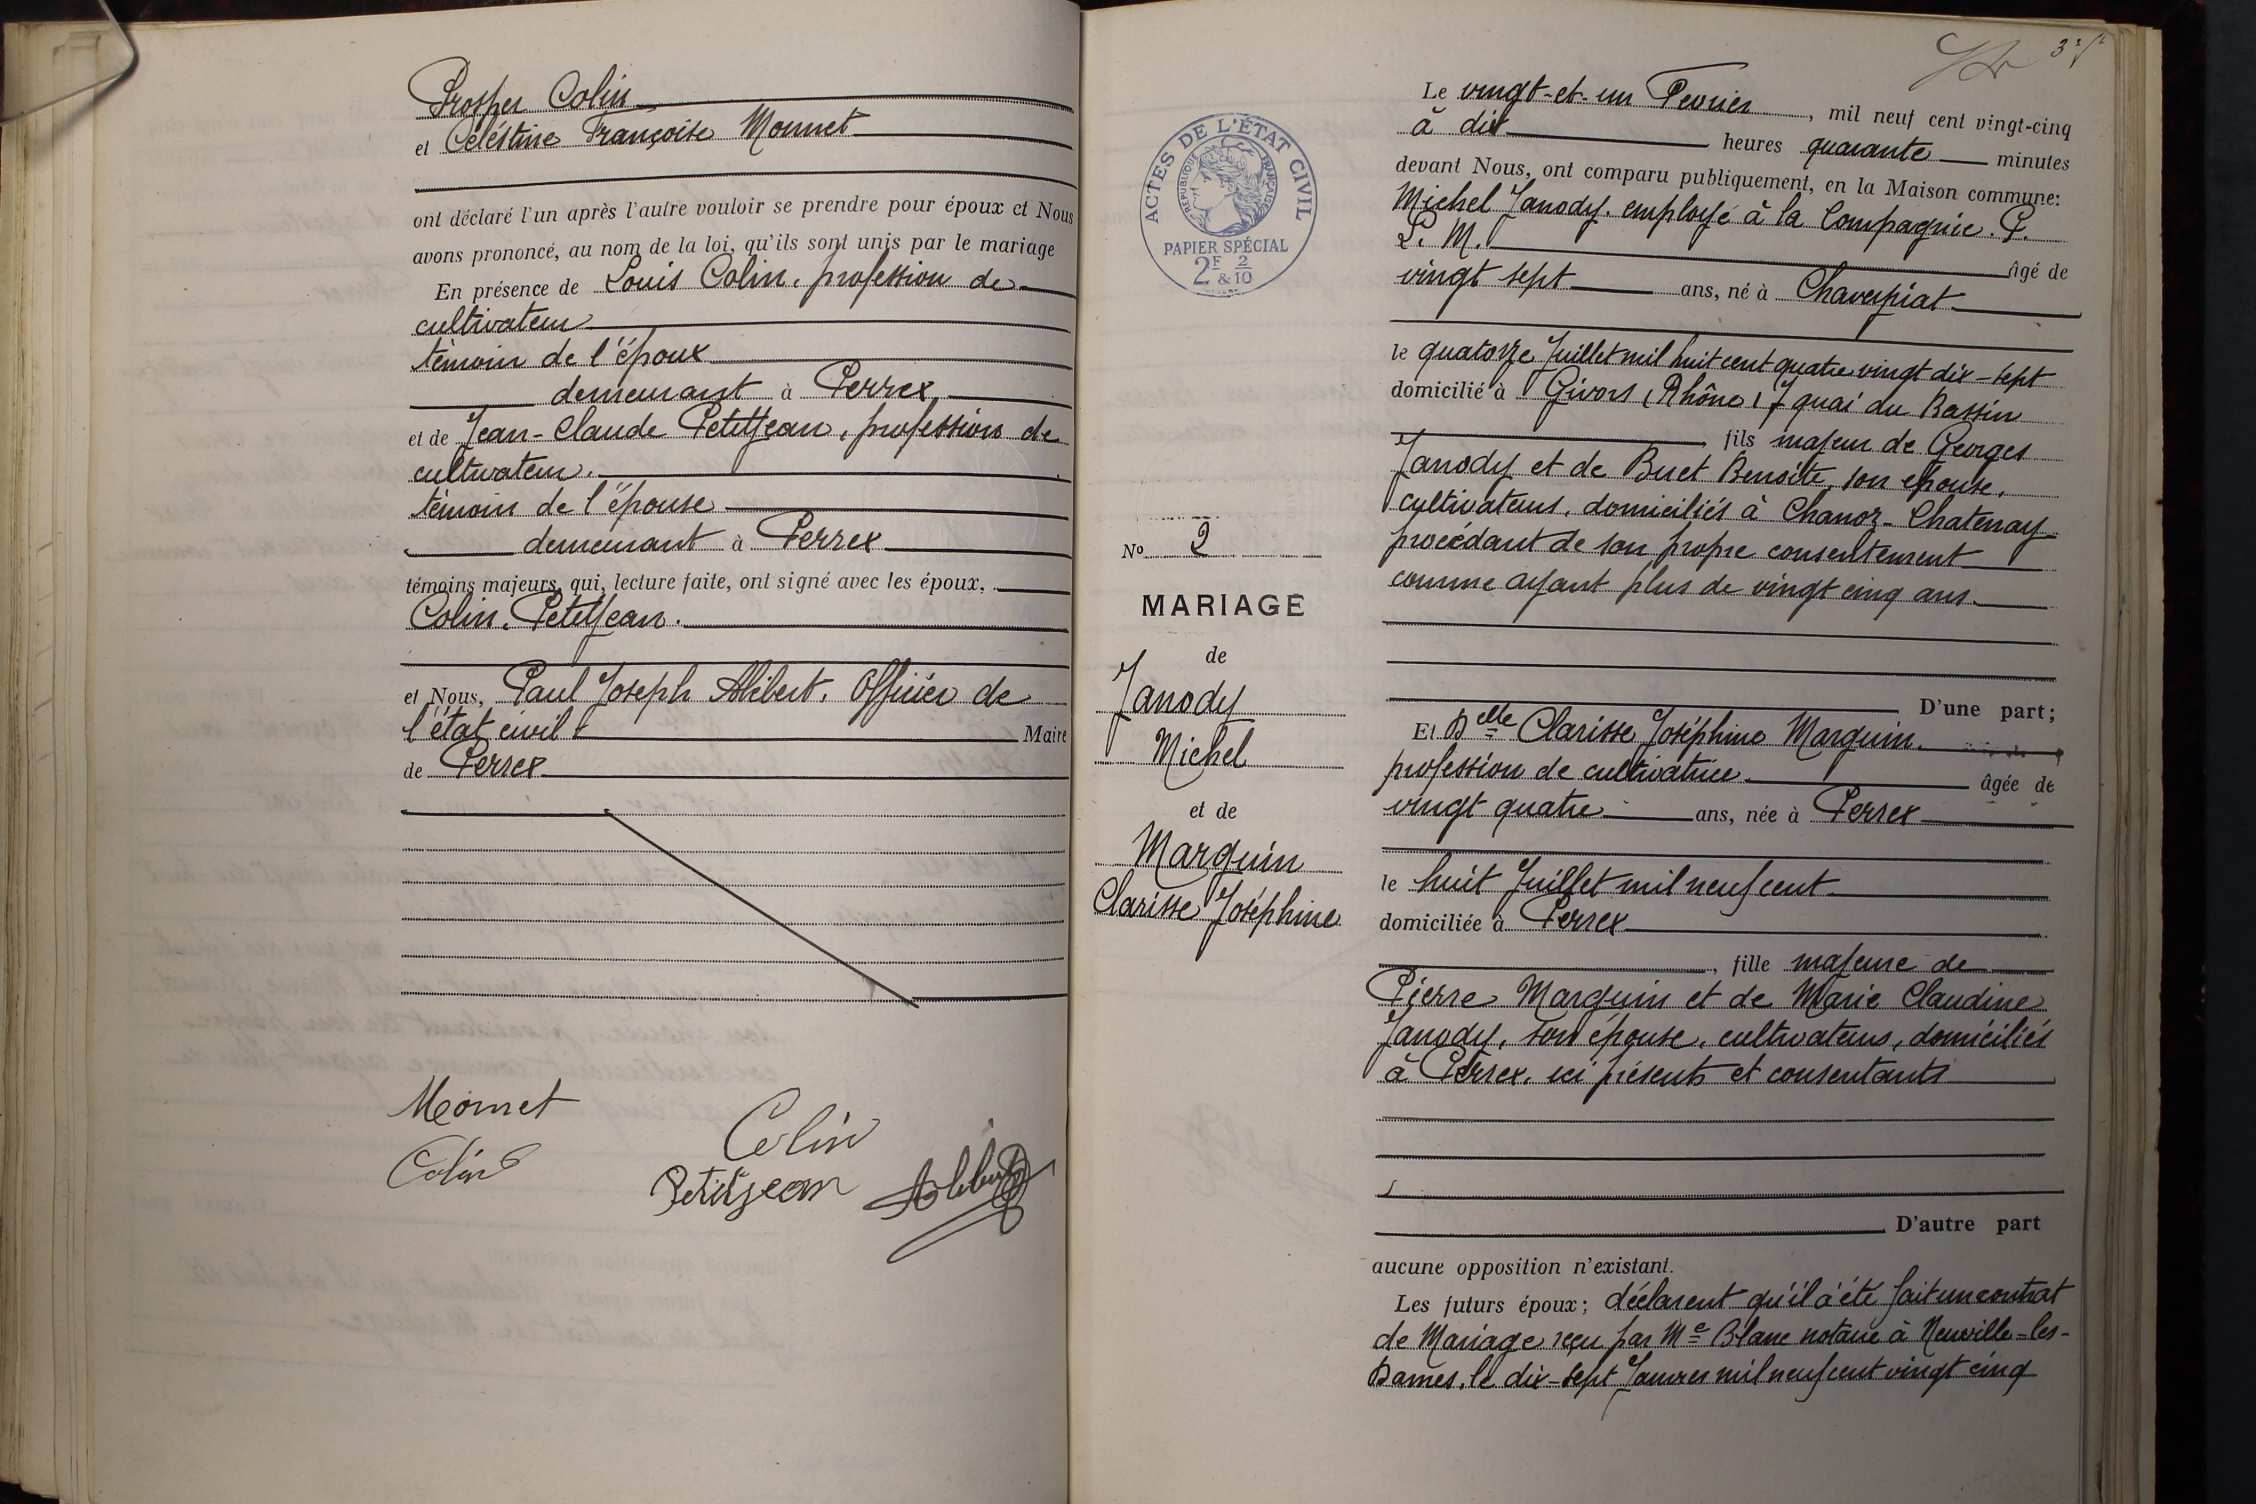 Prosper Colin
et Céléstine Françoise Monnet
ont déclaré l'un après l'autre vouloir se prendre pour époux et Nous
avons prononcé, au nom de la loi, qu'ils sont unis par le mariage
En présence de Louis Colin, profession de
cultivateur
témoin de l'époux
demeurant à Perrex
et de Jean-Claude Petitjean, profession de
cultivateur.
témoin de l'épouse
demeurant à Perrex
témoins majeurs, qui, lecture faite, ont signé avec les époux,
Colin. Petitjean.
et Nous, Paul Joseph Alébert, Officier de
l'état civil Maire
de Perrex
Monnet
Colin
Colin
Petitjean
ACTES DE L'ÉTAT CIVIL
RÉPUBLIQUE FRANÇAISE
PAPIER SPÉCIAL
2F & 2/10
No 2
MARIAGE
de
Janody
Michel
et de
Marguin
Clarisse Joséphine
Le vingt-et-un Fevrier, mil neuf cent vingt-cinq
à dix heures quarante minutes
devant Nous, ont comparu publiquement, en la Maison commune:
Michel Janody, employé à la Compagnie. P.
L. M. âgé de
vingt sept ans, né à Chaveyriat
le quatorze Juillet mil huit cent quatre vingt dix-sept
domicilié à Givors (Rhône) 7 quai du Bassin
fils majeur de Georges
Janody et de Buet Benoîte, son épouse,
cultivateurs, domiciliés à Chanoz-Chatenay
procédant de son propre consentement
comme ayant plus de vingt cinq ans.
D'une part;
Et Delle Clarisse Joséphine Marguin.
profession de cultivatrice âgée de
vingt quatre ans, née à Perrex
le huit Juillet mil neuf cent
domiciliée à Perrex
, fille majeure de
Pierre Marguin et de Marie Claudine
Janody, son épouse, cultivateurs, domiciliés
à Perrex, ici présents et consentants
D'autre part
aucune opposition n'existant.
Les futurs époux; déclarent qu'il a été fait un contrat
de Mariage reçu par Me Blanc notaire à Neuville-les-
Dames, le dix-sept Janvier mil neuf cent vingt cinq